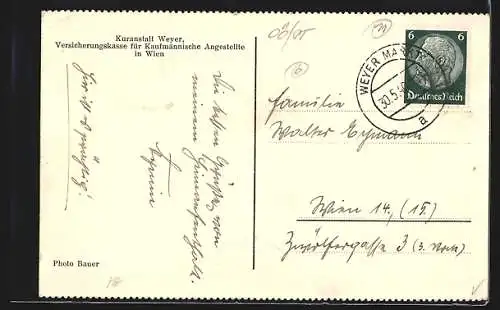 Kuranstalt Weyer,
Versicherungskasse für Kaufmännische Angestellte
in Wien
Die besten Grüße von
meinem
Hier ist es prächtig!
Photo Bauer
6 6
Deutsches Reich
WEYER MARKT
30.5.
a
Familie
Walter
Wien 14, (15).
Zwölfergasse 3 (3. Stock)